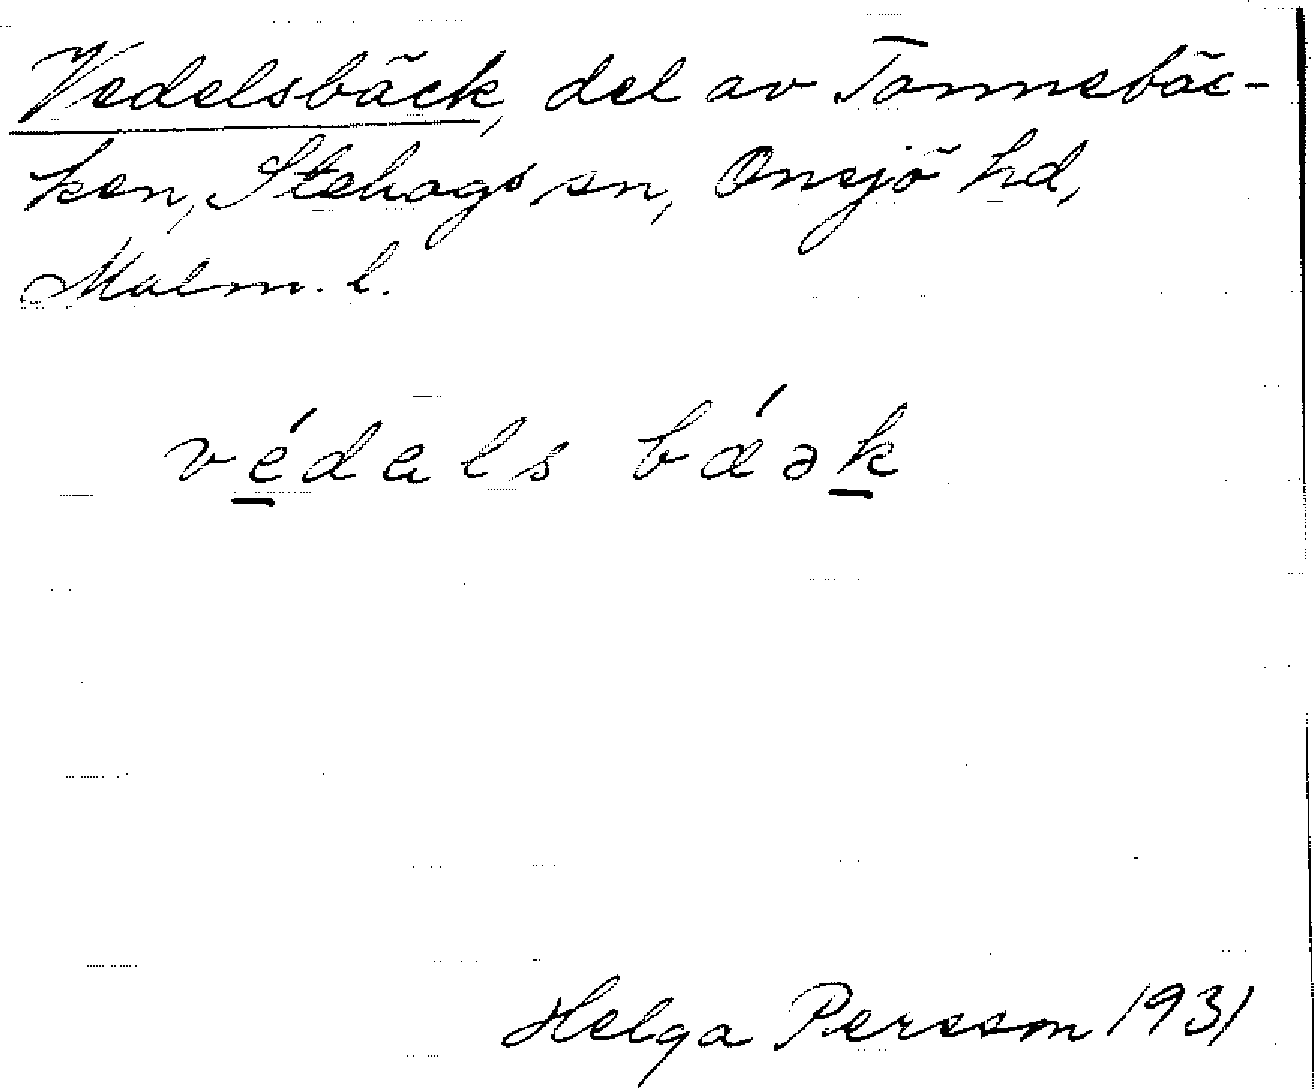 Vedelsbäck, del av Tannebäc-
ken, Stehags sn, Onsjö hd,
Malm. l.
védals báək
Helga Persson 1931